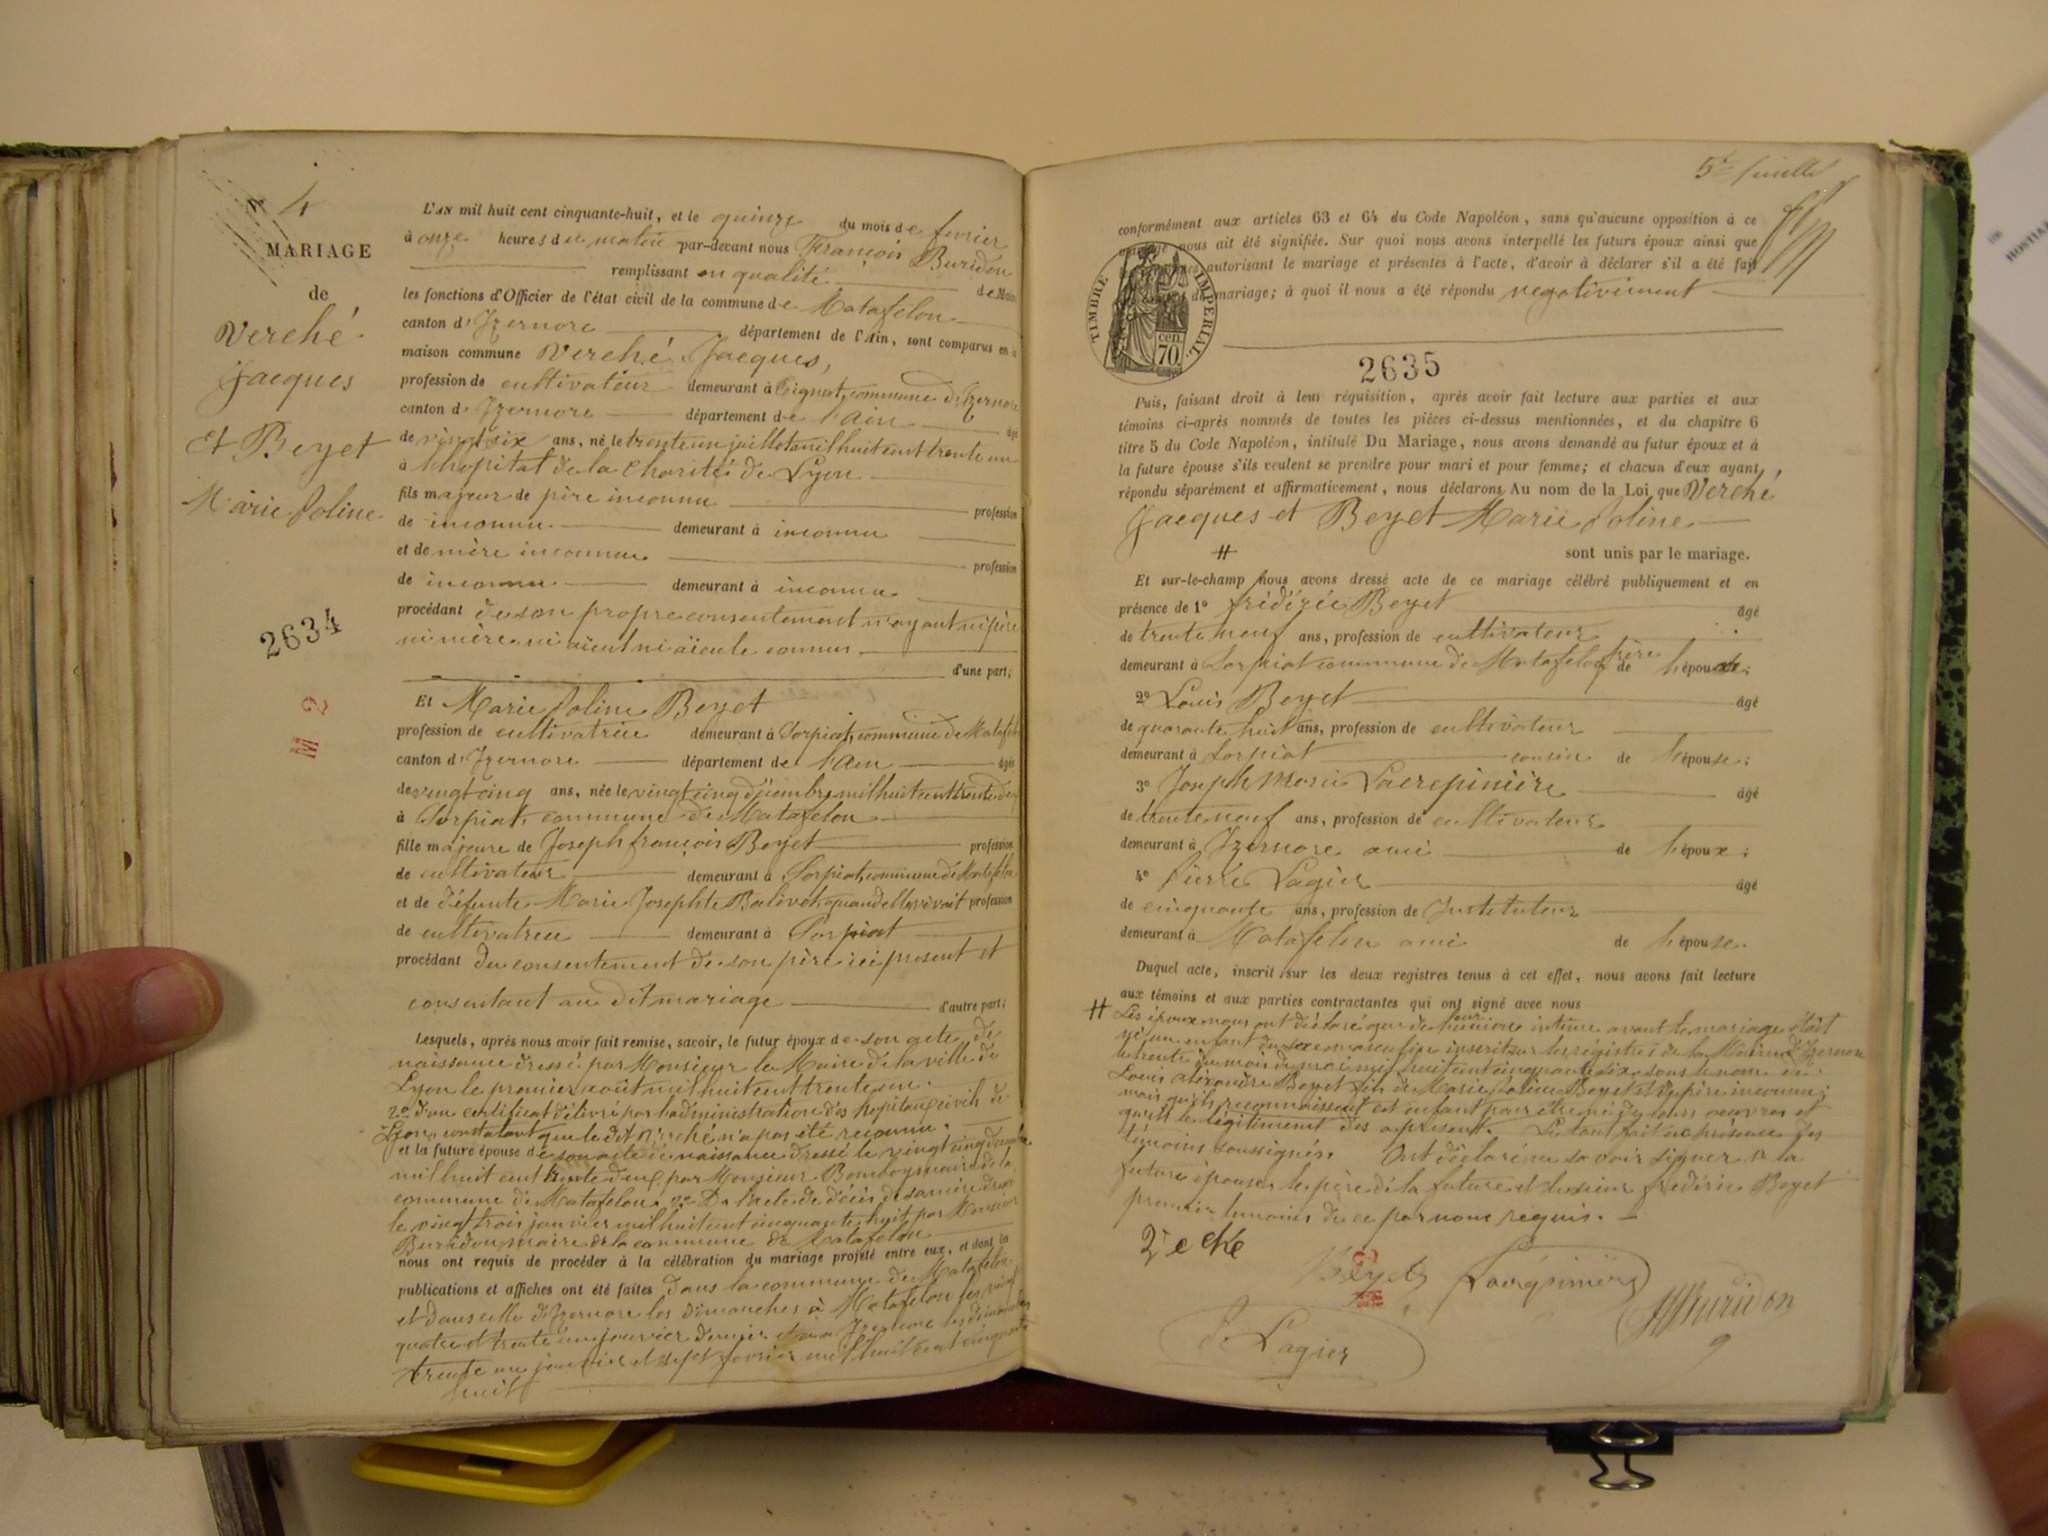 N° 4
MARIAGE
de
Verché
Jacques
Et Beyet
Marie Joline
2634
M 2
L'AN mil huit cent cinquante-huit, et le quinze du mois de février
à onze heures du matin par-devant nous François Buridon
remplissant en qualité de Maire
les fonctions d'Officier de l'état civil de la commune de Matafelon
canton d'Izernore département de l'Ain, sont comparus en la
maison commune Verché Jacques,
profession de cultivateur demeurant à Tignat, commune d'Izernore
canton d'Izernore département de l'ain âgé
de vingt six ans, né le trente un juillet mil huit cent trente un
à l'hopital de la Charité de Lyon
fils majeur de père inconnu profession
de inconnu demeurant à inconnu
et de mère inconnue profession
de inconnu demeurant à inconnu
procédant de son propre consentement n'ayant ni père
ni mère ni aïeul ni aïeule connus
d'une part;
Et Marie Joline Beyet
profession de cultivatrice demeurant à Sorpiat, commune de Matafelon
canton d'Izernore département de l'ain âgée
de vingt cinq ans, née le vingt cinq décembre mil huit cent trente deux
à Sorpiat, commune de Matafelon
fille majeure de Joseph françois Beyet profession
de cultivateur demeurant à Sorpiat, commune de Matafelon
et de défunte Marie Josephte Balivet quand elle vivait profession
de cultivatrice demeurant à Sorpiat
procédant du consentement de son père ici présent et
consentant au dit mariage d'autre part;
Lesquels, après nous avoir fait remise, savoir, le futur époux de son acte de
naissance dressé par Monsieur le Maire de la ville de
Lyon le premier août mil huit cent trente un.
2° d'un certificat délivré par l'administration des hopitaux civils de
Lyon constatant que le dit Verché n'a pas été reconnu.
et la future épouse de son acte de naissance dressé le vingt cinq décembre
mil huit cent trente deux par Monsieur maire de la
commune de Matafelon. 2° De l'acte de décès de sa mère dressé
le vingt trois janvier mil huit cent cinquante huit par Monsieur
Buridon, maire de la commune de Matafelon
nous ont requis de procéder à la célébration du mariage projeté entre eux, et dont les
publications et affiches ont été faites dans la commune de Matafelon
et dans celle d'Izernore les dimanches à Matafelon les vingt
quatre et trente un janvier dernier et à Izernore les dimanches
trente un janvier et sept février mil huit cent cinquante
huit
5e feuille
conformément aux articles 63 et 64 du Code Napoléon, sans qu'aucune opposition à ce
mariage nous ait été signifiée. Sur quoi nous avons interpellé les futurs époux ainsi que
autorisant le mariage et présentes à l'acte, d'avoir à déclarer s'il a été fait
de mariage; à quoi il nous a été répondu negativement
TIMBRE IMPÉRIAL
cen.
70
2635
Puis, faisant droit à leur réquisition, après avoir fait lecture aux parties et aux
témoins ci-après nommés de toutes les pièces ci-dessus mentionnées, et du chapitre 6
titre 5 du Code Napoléon, intitulé Du Mariage, nous avons demandé au futur époux et à
la future épouse s'ils veulent se prendre pour mari et pour femme; et chacun d'eux ayant
répondu séparément et affirmativement, nous déclarons Au nom de la Loi que Verché
Jacques et Beyet Marie Joline
# sont unis par le mariage.
Et sur-le-champ nous avons dressé acte de ce mariage célébré publiquement et en
présence de 1° frédéric Beyet âgé
de trente neuf ans, profession de cultivateur
demeurant à Sorpiat commune de Matafelon frère de l'épouse;
2° Louis Beyet âgé
de quarante huit ans, profession de cultivateur
demeurant à Sorpiat cousin de l'épouse;
3° Joseph Marie Lacrepinière âgé
de trente neuf ans, profession de cultivateur
demeurant à Izernore ami de l'époux;
4° Pierre Lagier âgé
de cinquante ans, profession de Instituteur
demeurant à Matafelon ami de l'épouse.
Duquel acte, inscrit sur les deux registres tenus à cet effet, nous avons fait lecture
aux témoins et aux parties contractantes qui ont signé avec nous
# Les époux nous ont déclaré que de leur union intime avant le mariage était
né un enfant du sexe masculin inscrit sur les régistres de la Mairie d'Izernore
le trente du mois de mai mil huit cent cinquante six sous le nom de
Louis Alexandre Beyet fils de Marie Joline Beyet et de père inconnu;
mais qu'ils reconnaissent cet enfant pour être né de leurs oeuvres et
qu'ils le légitiment dès à présent. Le tout fait en présence des
témoins soussignés. Ont déclaré ne savoir signer la
future épouse, le père de la future et le sieur frédéric Beyet
premier témoin de ce par nous requis.
Beyet Lacrépinière
P. Lagier
Buridon
M 2